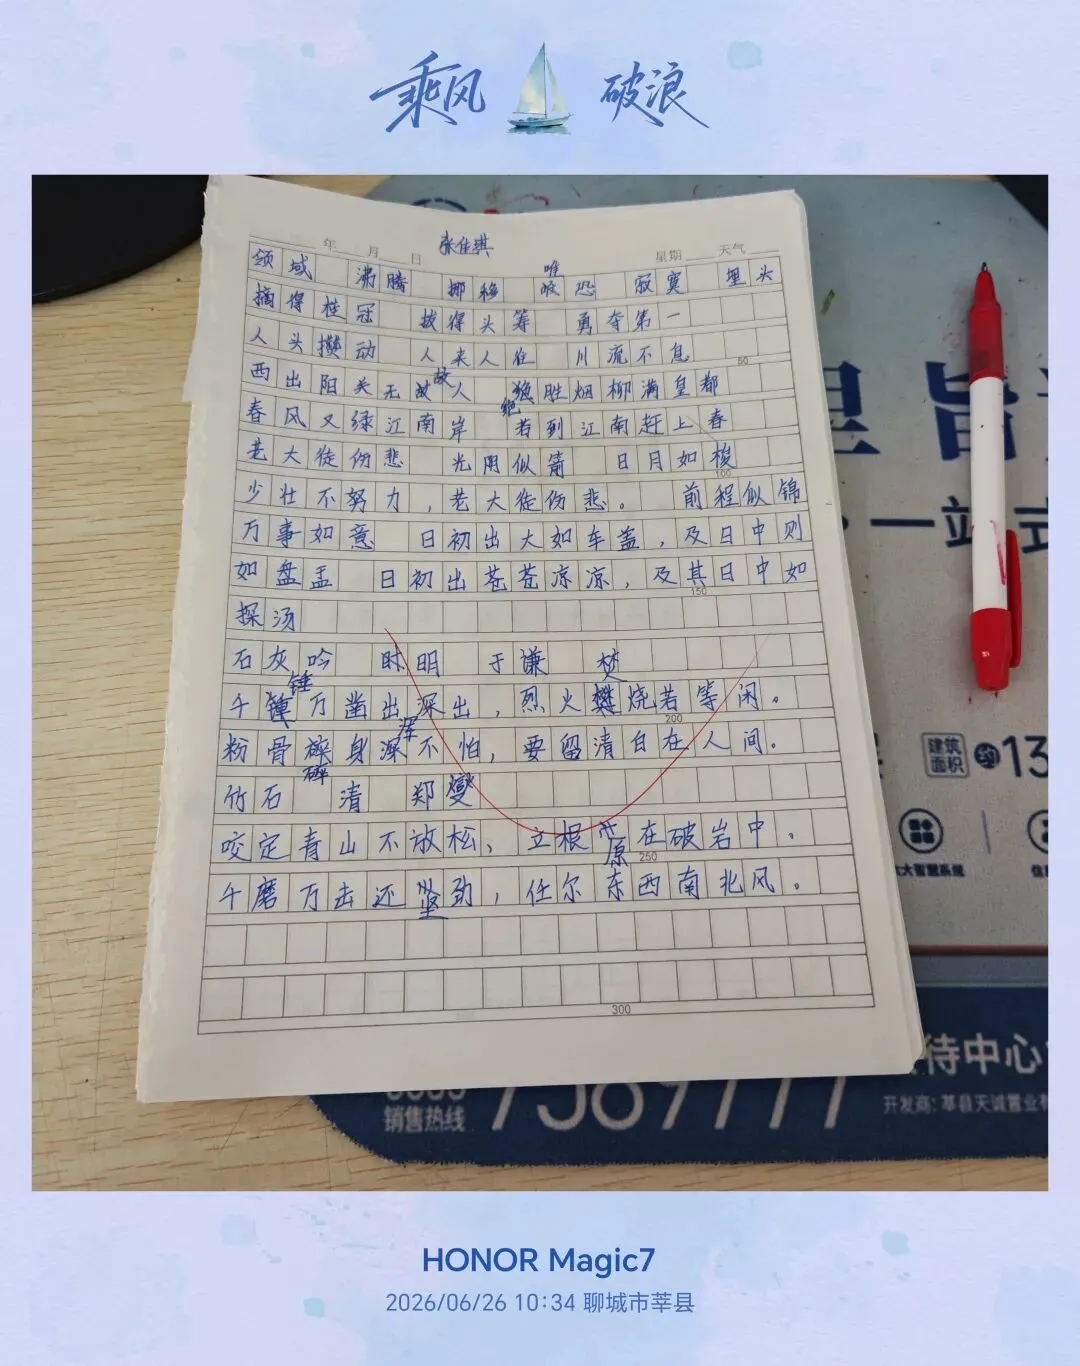 乘风 破浪
年 月 日 张佳琪 星期 天气
唯
领域 沸腾 挪移 恐 寂寞 埋头
摘得桂冠 拔得头筹 勇夺第一
人头攒动 人来人往 川流不息
50
故
西出阳关无故人 绝胜烟柳满皇都
绝
春风又绿江南岸 若到江南赶上春
老大徒伤悲 光阴似箭 日月如梭
100
少壮不努力,老大徒伤悲。 前程似锦
万事如意 日初出大如车盖,及日中则
如盘盂 日初出苍苍凉凉,及其日中如
150
探汤
石灰吟 时明 于谦 焚
锤
千锺万凿出深出,烈火樊烧若等闲。
200
浑
粉骨碎身深不怕,要留清白在人间。
碎
竹石 清 郑燮
咬定青山不放松、立根在破岩中。
原 250
千磨万击还坚劲,任尔东西南北风。
坚
300
建筑
面积
约13
大智慧系统
待中心
销售热线
7369777
开发商:莘县天诚置业有
HONOR Magic7
2026/06/26 10:34 聊城市莘县